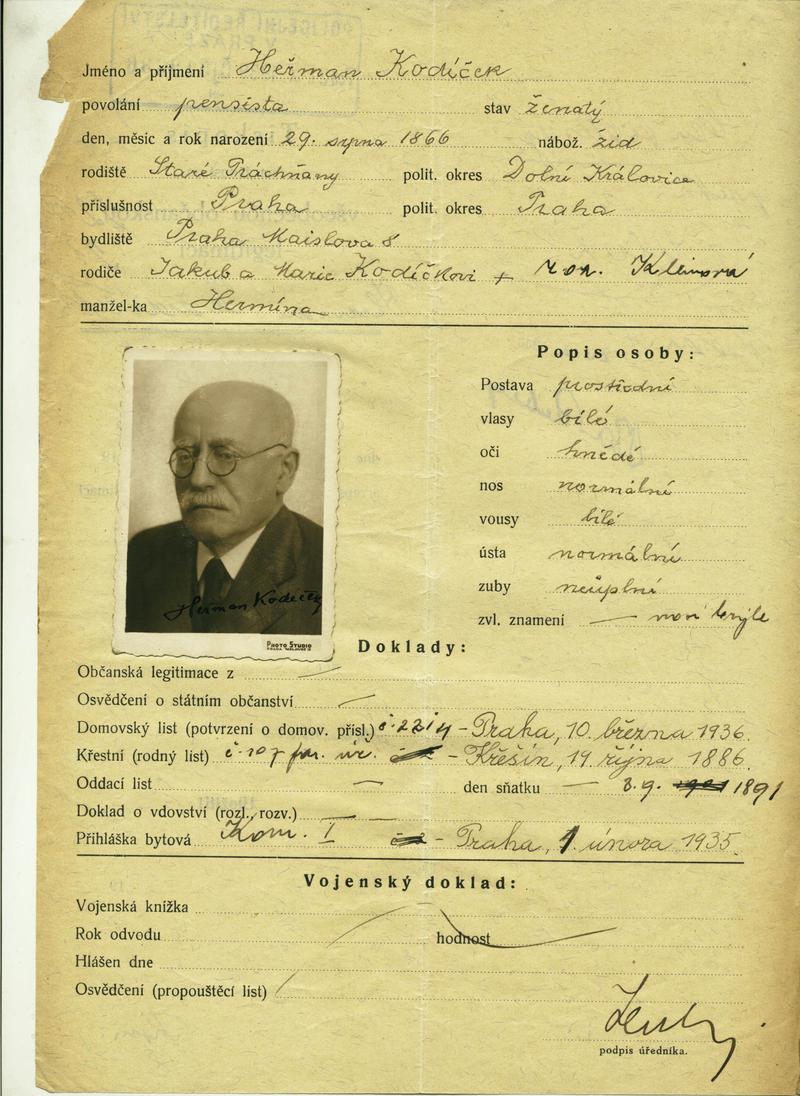 Jméno a příjmení Heřman Kodíček
povolání pensista stav ženatý
den, měsíc a rok narození 29. srpna 1866 nábož. žid
rodiště Staré Práchňany polit. okres Dolní Královice
příslušnost Praha polit. okres Praha
bydliště Praha Maislova 8
rodiče Jakub a Marie Kodíčkovi + roz. Kleinová
manžel-ka Hermína
Popis osoby:
Postava prostřední
vlasy bílé
oči hnědé
nos normální
vousy bílé
ústa normální
zuby neúplné
zvl. znamení — nosí brýle
Heřman Kodíček
PHOTO STUDIO
Doklady:
Občanská legitimace z —
Osvědčení o státním občanství —
Domovský list (potvrzení o domov. přísl.) č. 2214 - Praha, 10. března 1936.
Křestní (rodný list) č. 107 - Křešín, 19. října 1886.
Oddací list — den sňatku — 3.9. 1891
Doklad o vdovství (rozl., rozv.) —
Přihláška bytová Kom. I - Praha, 1. února 1935.
Vojenský doklad:
Vojenská knížka
Rok odvodu hodnost
Hlášen dne
Osvědčení (propouštěcí list)
podpis úředníka.